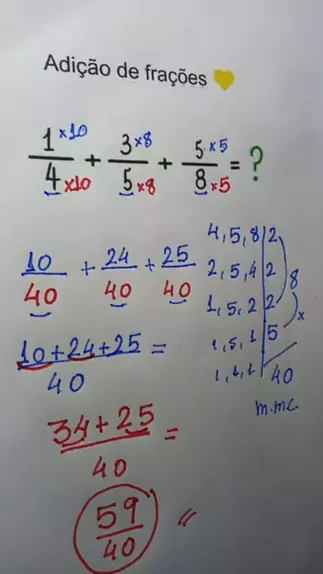 Adição de frações
1×10/4×10 + 3×8/5×8 + 5×5/8×5 = ?
10/40 + 24/40 + 25/40
10+24+25/40 =
34+25/40 =
59/40 //
4, 5, 8 | 2
2, 5, 4 | 2 8
1, 5, 2 | 2 x
1, 5, 1 | 5
1, 1, 1 | 40
m.m.c.